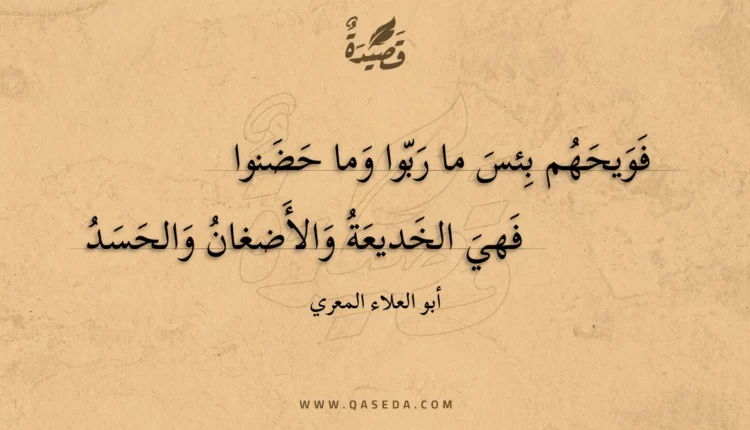 قَصيدَةٌ
فَوَيحَهُم بِئسَ ما رَبّوا وَما حَضَنوا
فَهيَ الخَديعَةُ وَالأَضغانُ وَالحَسَدُ
أبو العلاء المعري
WWW.QASEDA.COM